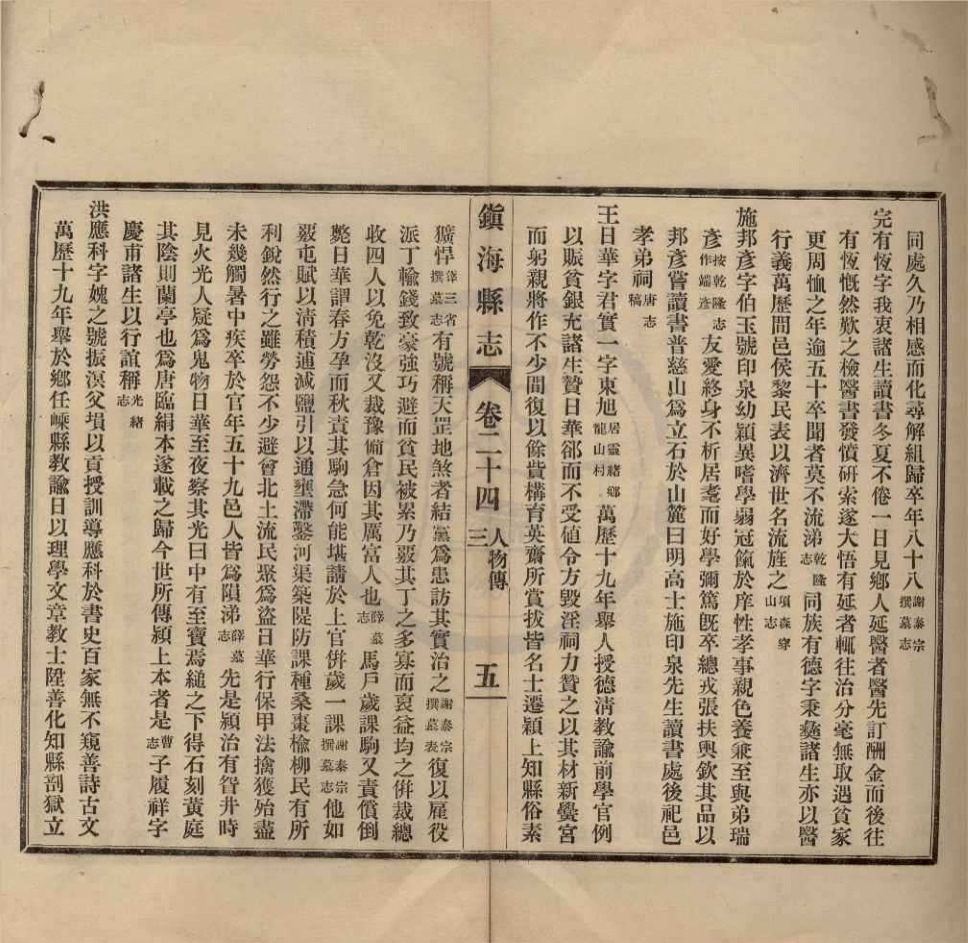 同處久乃相感而化尋解組歸卒年八十八謝泰宗撰墓志
完有恆字我衷諸生讀書冬夏不倦一日見鄉人延醫者醫先訂酬金而後往
有恆慨然歎之檢醫書發憤研索遂大悟有延者輒往治分毫無取遇貧家
更周恤之年逾五十卒聞者莫不流涕乾隆志同族有德字秉彝諸生亦以醫
行義萬歷間邑侯黎民表以濟世名流旌之項森穿山志
施邦彥字伯玉號印泉幼穎異嗜學弱冠餼於庠性孝事親色養兼至與弟瑞
彥按乾隆志作端彥友愛終身不析居耄而好學彌篤既卒總戎張扶輿欽其品以
邦彥嘗讀書普慈山爲立石於山麓曰明高士施印泉先生讀書處後祀邑
孝弟祠唐志稿
王日華字君實一字東旭居靈緒鄉龍山村萬歷十九年舉人授德清教諭前學官例
以賑貧銀充諸生贄日華郤而不受値令方毀淫祠力贊之以其材新黌宮
而躬親將作不少閒復以餘貲構育英齋所賞拔皆名士遷潁上知縣俗素
鎭海縣志 卷二十四 人物傳三 五
獷悍薛三省撰墓志有號稱天罡地煞者結黨爲患訪其實治之謝泰宗撰墓表復以雇役
派丁輸錢致豪強巧避而貧民被累乃覈其丁之多寡而裒益均之併裁總
收四人以免乾沒又裁豫備倉因其厲富人也薛墓志馬戶歲課駒又責償倒
斃日華謂春方孕而秋責其駒急何能堪請於上官併歲一課謝泰宗撰墓志他如
覈屯賦以清積逋減鹽引以通壅滯鑿河渠築隄防課種桑棗楡柳民有所
利銳然行之雖勞怨不少避會北土流民聚爲盜日華行保甲法擒獲殆盡
未幾觸暑中疾卒於官年五十九邑人皆爲隕涕薛墓志先是潁治有眢井時
見火光人疑爲鬼物日華至夜察其光曰中有至寶焉縋之下得石刻黃庭
其陰則蘭亭也爲唐臨絹本遂載之歸今世所傳潁上本者是曹志子履祥字
慶甫諸生以行誼稱光緒志
洪應科字媿之號振溟父塤以貢授訓導應科於書史百家無不窺善詩古文
萬歷十九年舉於鄉任嵊縣教諭日以理學文章教士陞善化知縣剖獄立